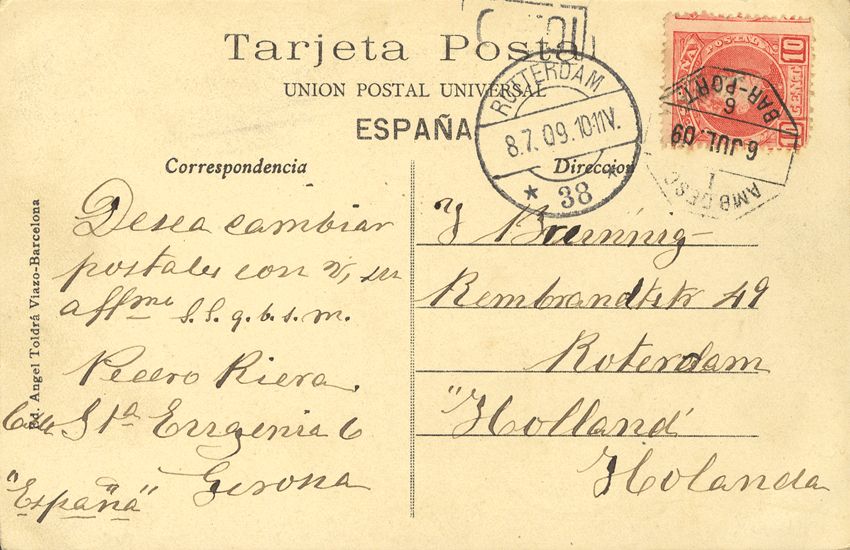 Tarjeta Postal
UNION POSTAL UNIVERSAL
ESPAÑA
ROTTERDAM
8.7.09.10-11V.
* 38 *
10
AMB DESC
1
6 JUL. 09
6
BAR-PORT.
Correspondencia
Desea cambiar
postales con V, su
affmo S. S. q. b. s. m.
Pedro Riera.
Calle Sta Eugenia 6
Gerona
"España"
Ed. Angel Toldrá Viazo-Barcelona
Direccion
J Breinnig
Rembrandtstr 49
Roterdam
"Holland"
Holanda